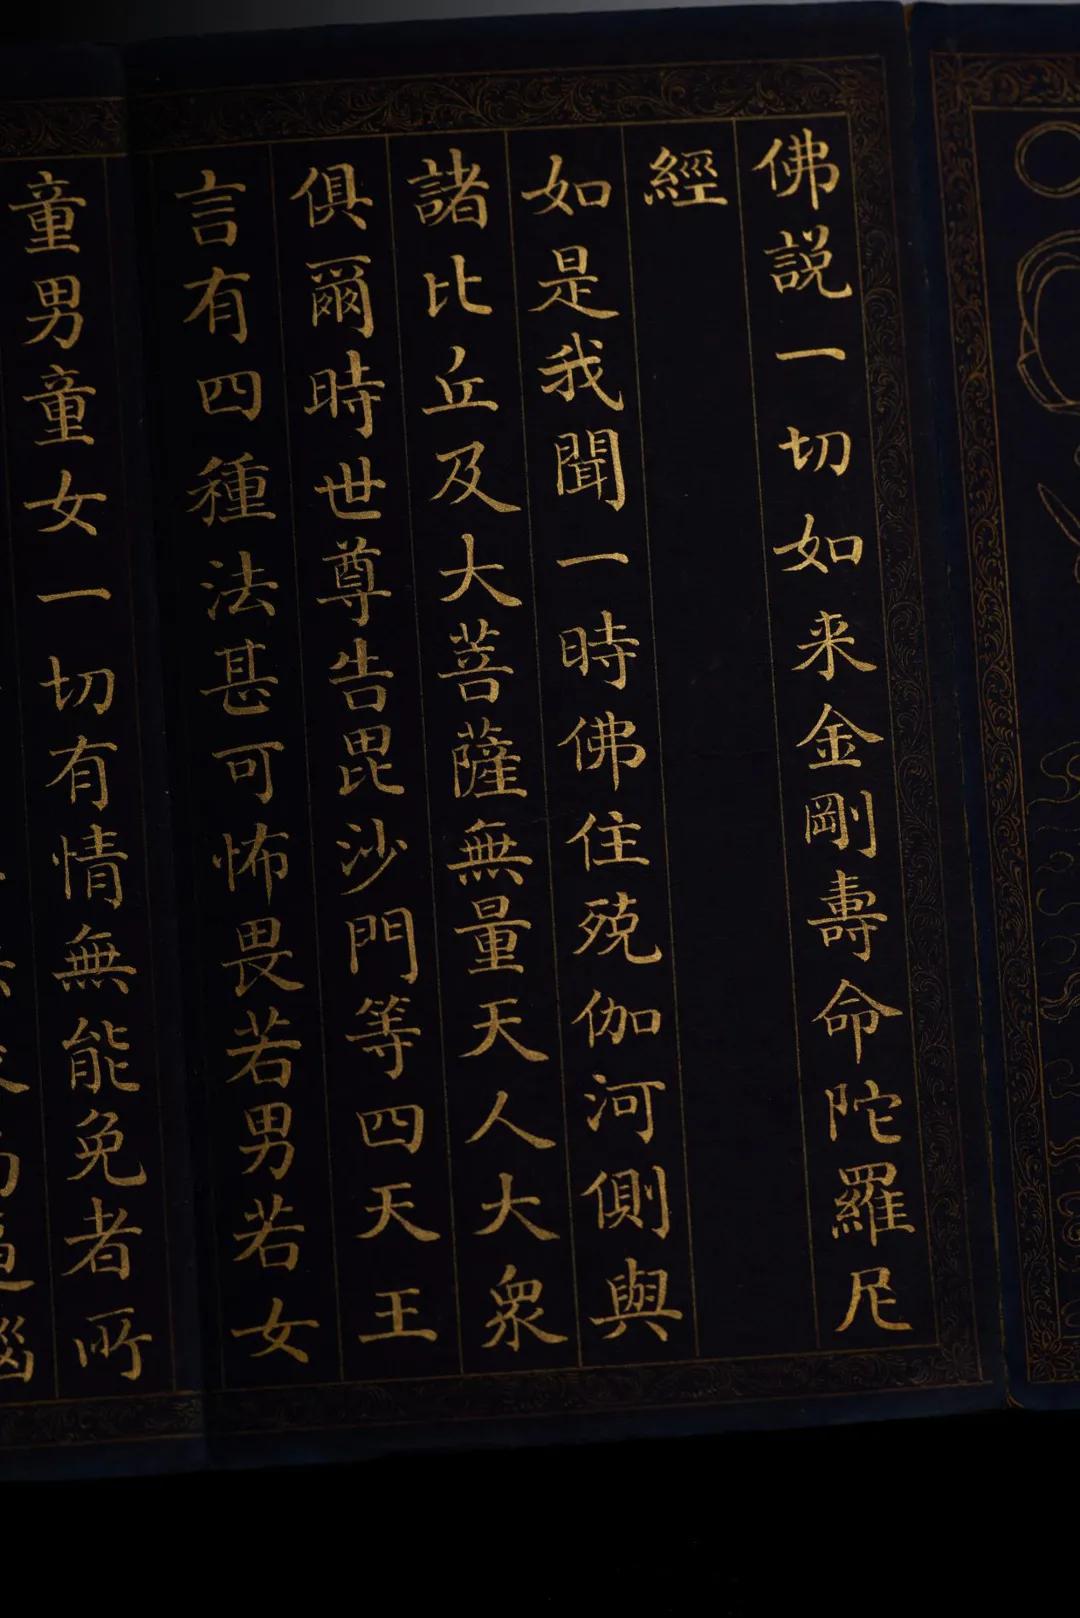 佛說一切如来金剛壽命陀羅尼
經
如是我聞一時佛住殑伽河側與
諸比丘及大菩薩無量天人大衆
俱爾時世尊告毘沙門等四天王
言有四種法甚可怖畏若男若女
童男童女一切有情無能免者所